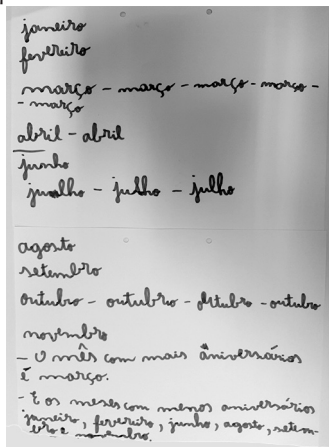 janeiro
fevereiro
março - março - março - março -
- março
abril - abril
junho
julho - julho - julho
agosto
setembro
outubro - outubro - outubro - outubro
novembro
- O mês com mais âniversários
é março.
- E os meses com menos aniversários
janeiro, fevereiro, junho, agosto, setem-
bro e novembro.